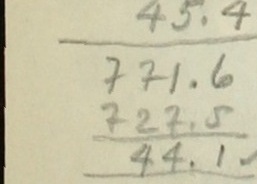 45.4
771.6
727.5
44.1